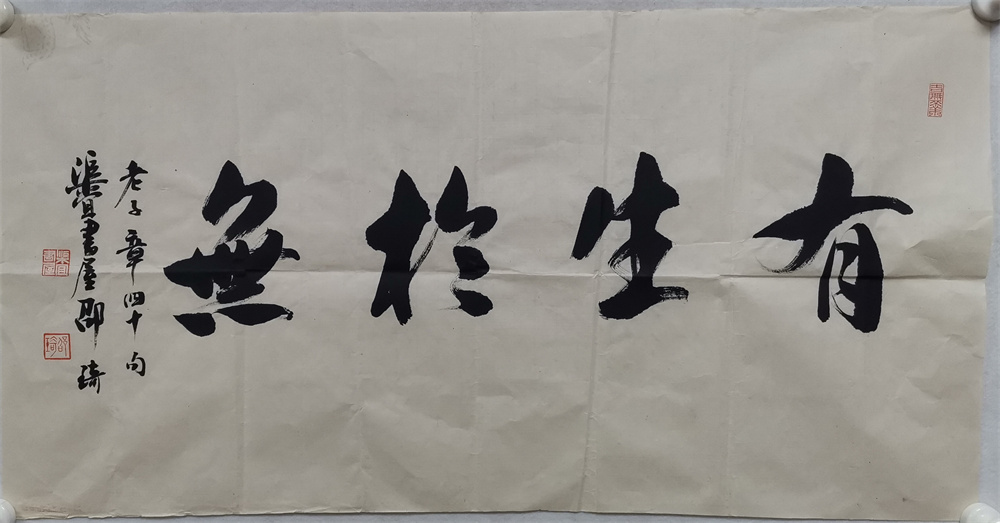 有生於無
老子章四十句
書屋邵琦